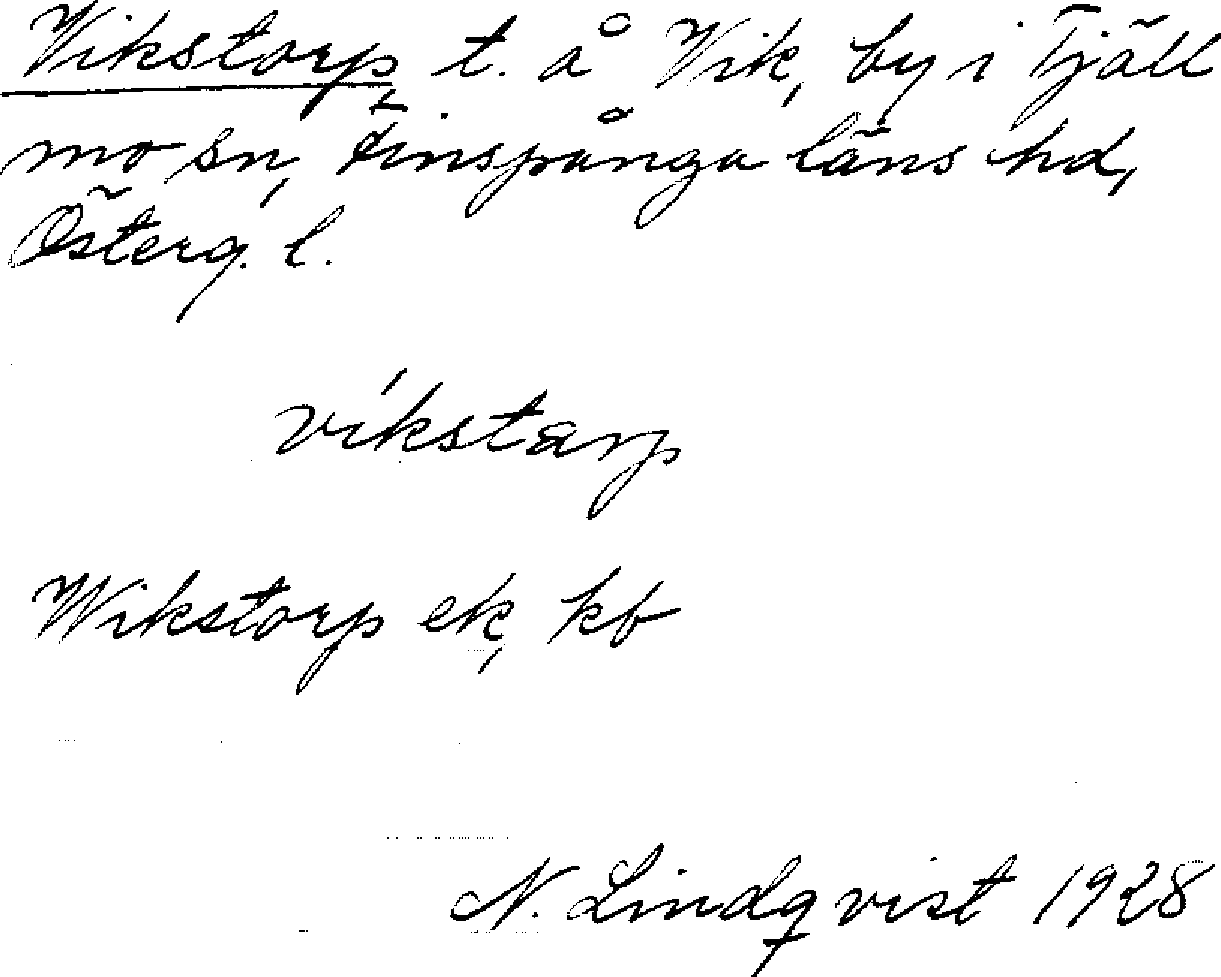 Vikstorp, t. å Vik, by i Tjäll
mo sn, Finspånga läns hd,
Österg. l.
vikstarp
Wikstorp ek, kb
N. Lindqvist 1928